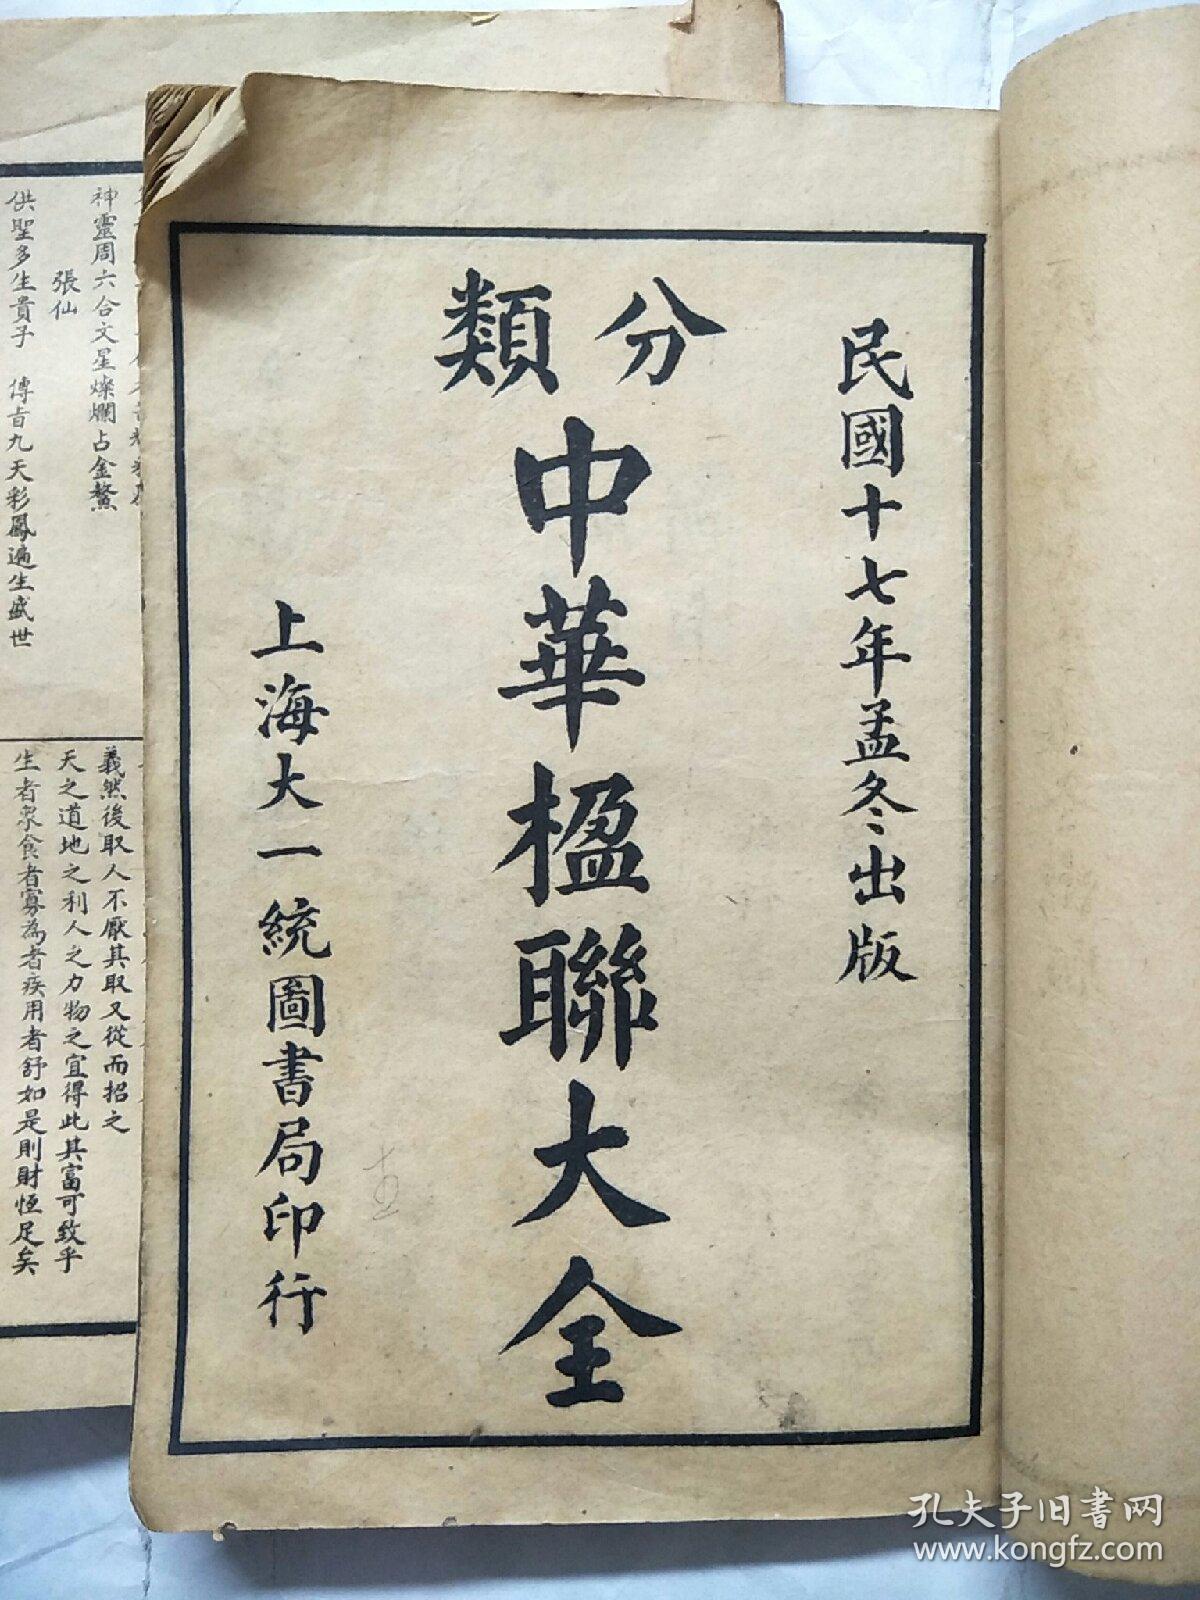 民國十七年孟冬出版
分類
中華楹聯大全
上海大一統圖書局印行
神靈周六合文星燦爛占金鰲
張仙
供聖多生貴子 傳旨九天彩鳳遍生盛世
義然後取人不厭其取又從而招之
天之道地之利人之力物之宜得此其富可致乎
生者眾食者寡為者疾用者舒如是則財恆足矣
孔夫子旧书网
www.kongfz.com